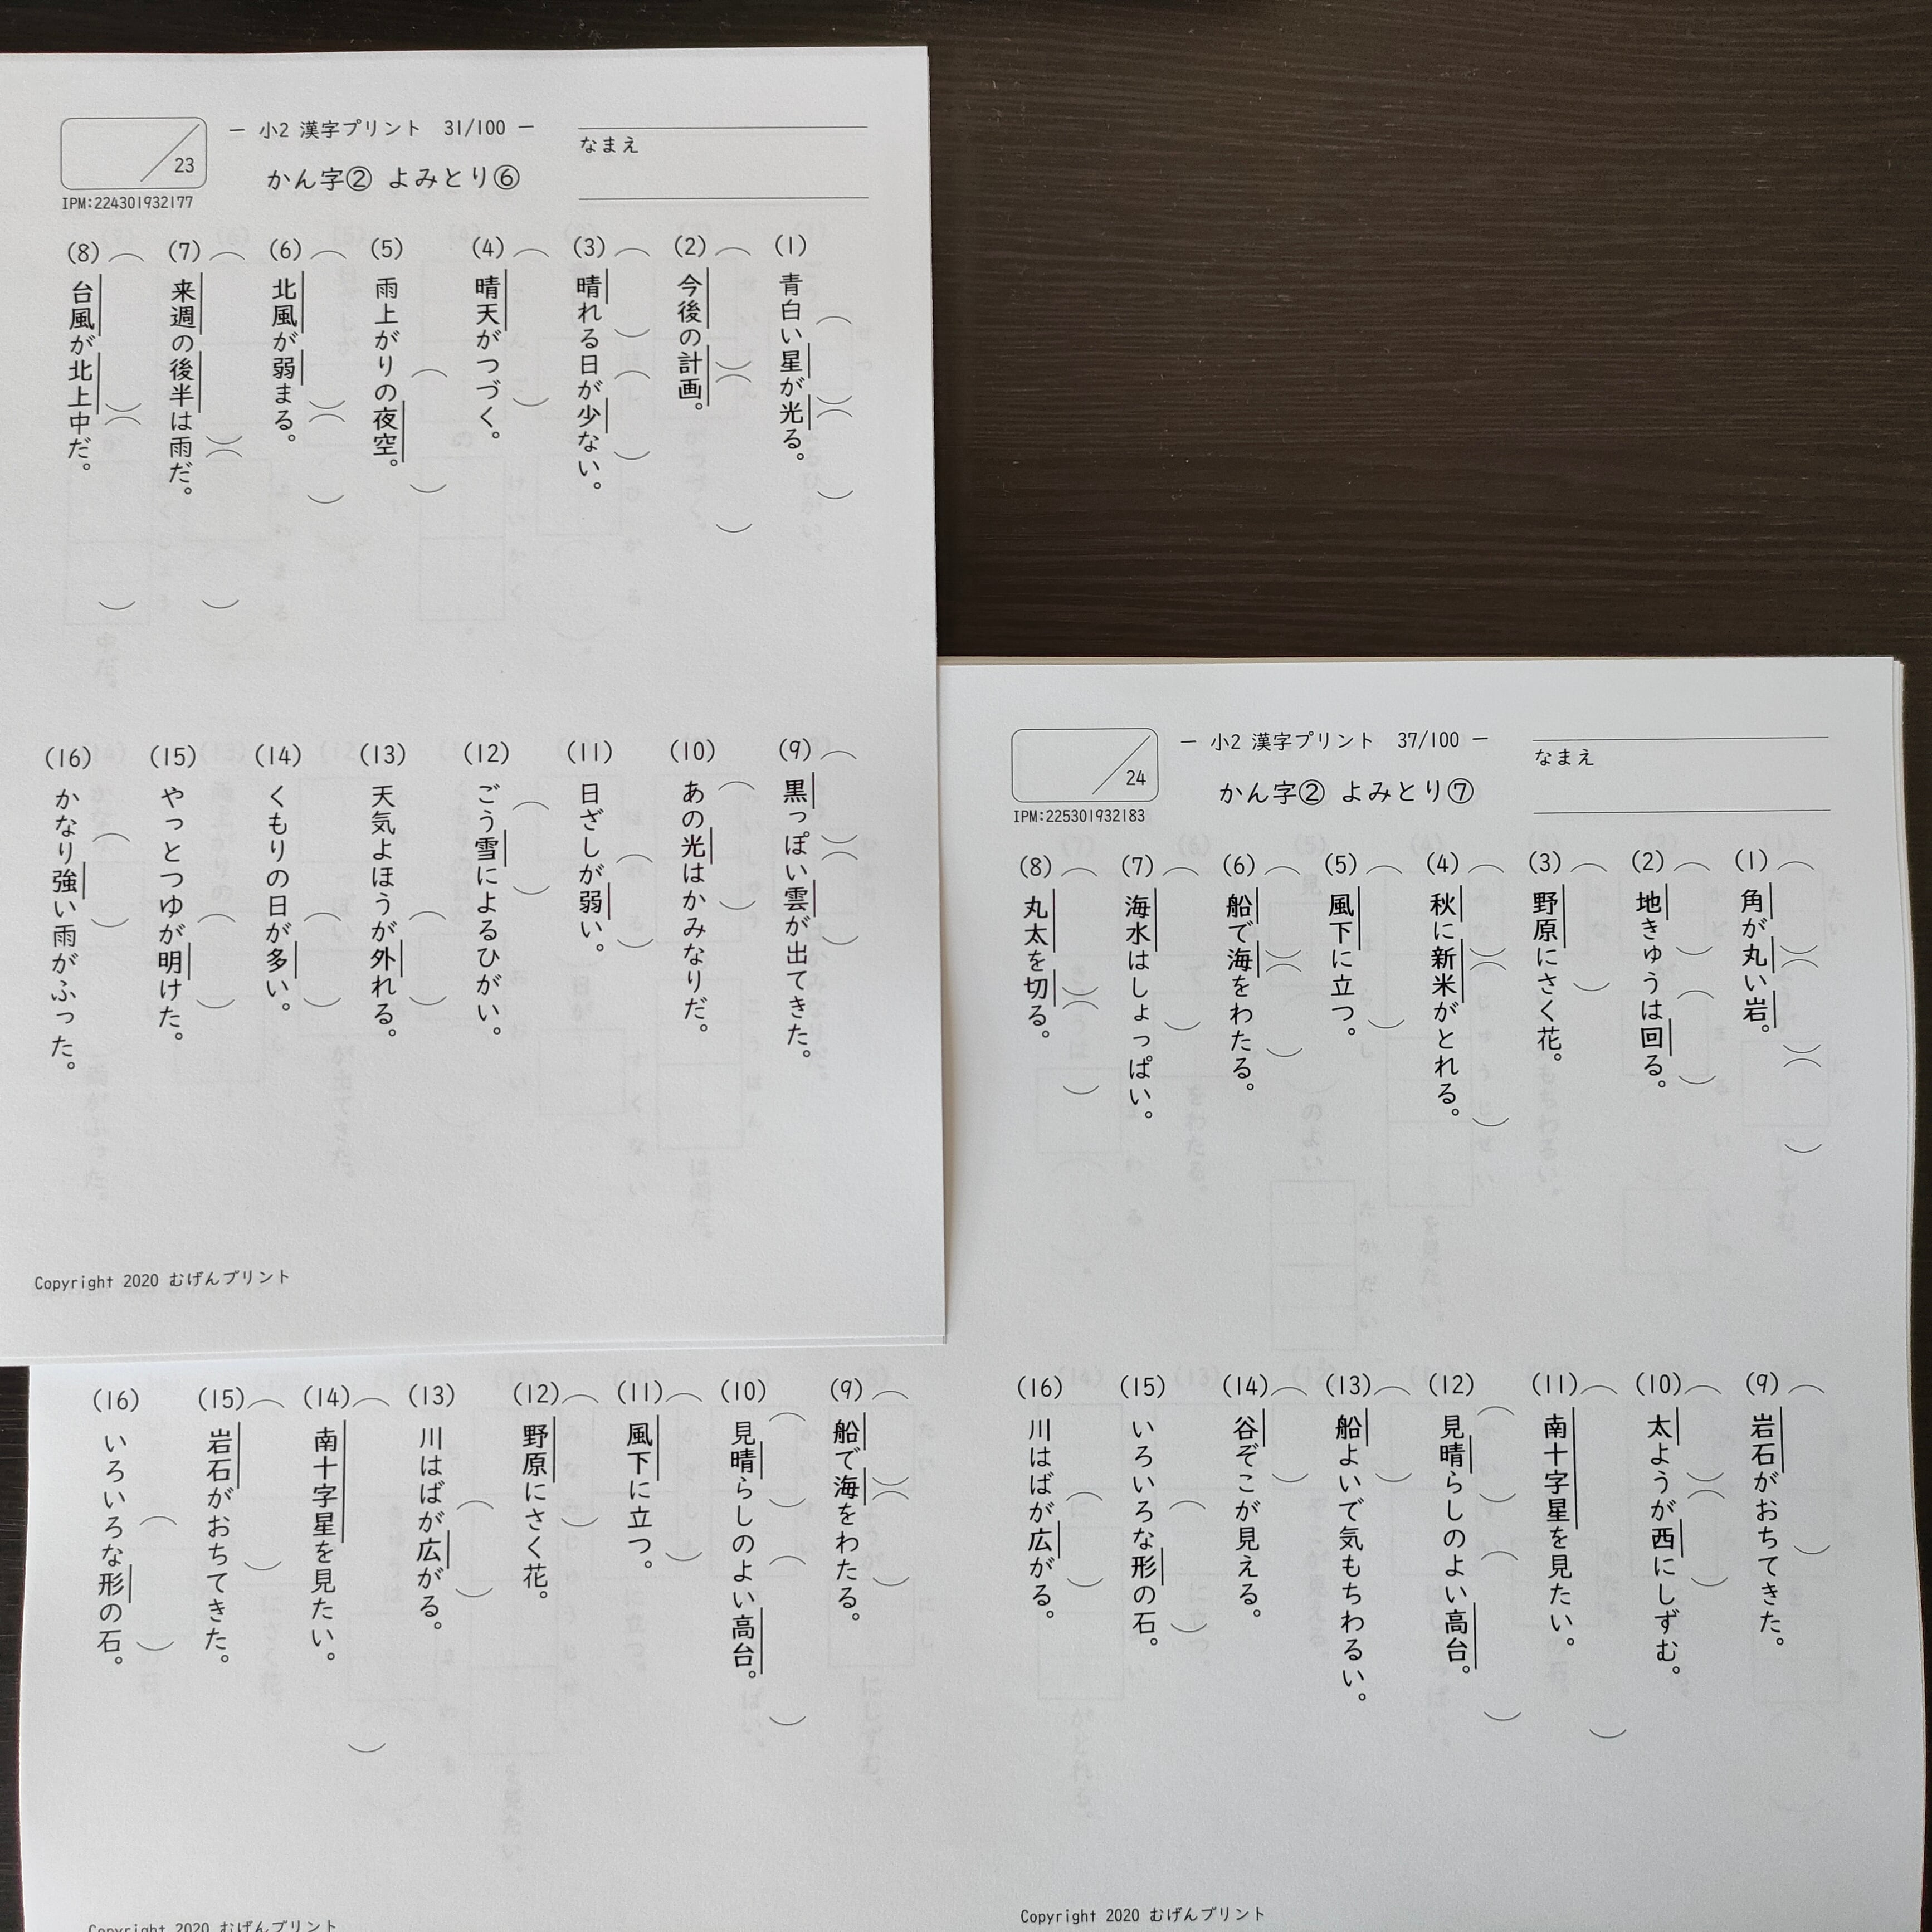 － 小2 漢字プリント 31/100 －
なまえ
／23
かん字② よみとり⑥
IPM:224301932177
(1) 青白い星が光る。
(2) 今後の計画。
(3) 晴れる日が少ない。
(4) 晴天がつづく。
(5) 雨上がりの夜空。
(6) 北風が弱まる。
(7) 来週の後半は雨だ。
(8) 台風が北上中だ。
(9) 黒っぽい雲が出てきた。
(10) あの光はかみなりだ。
(11) 日ざしが弱い。
(12) ごう雪によるひがい。
(13) 天気よほうが外れる。
(14) くもりの日が多い。
(15) やっとつゆが明けた。
(16) かなり強い雨がふった。
Copyright 2020 むげんプリント
－ 小2 漢字プリント 37/100 －
なまえ
／24
かん字② よみとり⑦
IPM:225301932183
(1) 角が丸い岩。
(2) 地きゅうは回る。
(3) 野原にさく花。
(4) 秋に新米がとれる。
(5) 風下に立つ。
(6) 船で海をわたる。
(7) 海水はしょっぱい。
(8) 丸太を切る。
(9) 岩石がおちてきた。
(10) 太ようが西にしずむ。
(11) 南十字星を見たい。
(12) 見晴らしのよい高台。
(13) 船よいで気もちわるい。
(14) 谷ぞこが見える。
(15) いろいろな形の石。
(16) 川はばが広がる。
Copyright 2020 むげんプリント
(9) 船で海をわたる。
(10) 見晴らしのよい高台。
(11) 風下に立つ。
(12) 野原にさく花。
(13) 川はばが広がる。
(14) 南十字星を見たい。
(15) 岩石がおちてきた。
(16) いろいろな形の石。
Copyright 2020 むげんプリント